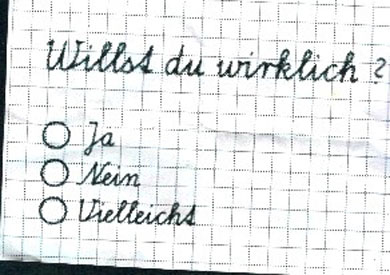 Willst du wirklich ?
Ja
Nein
Vielleicht